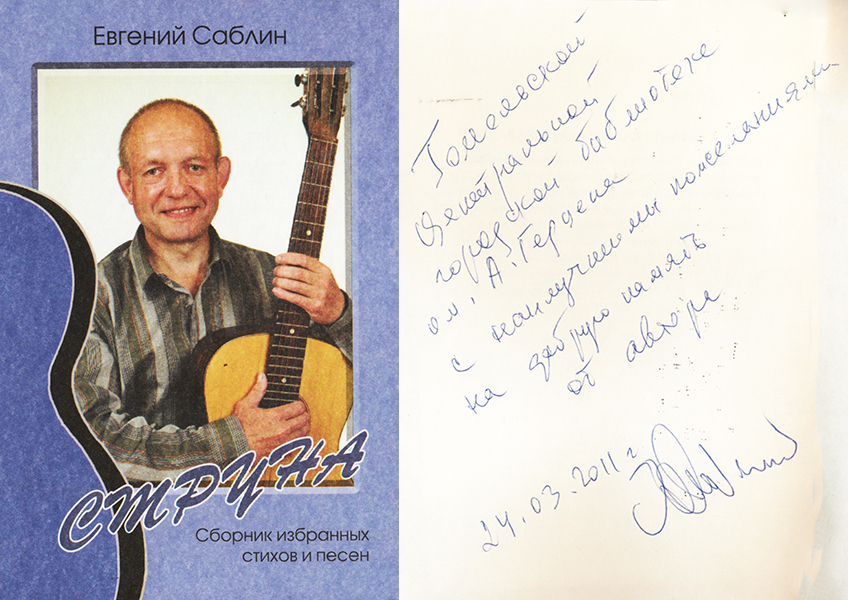 Евгений Саблин
СТРУНА
Сборник избранных
стихов и песен
Гомельской
Центральной
городской библиотеке
им. А. Герцена
с наилучшими пожеланиями
на добрую память
от автора
24.03.2011 г